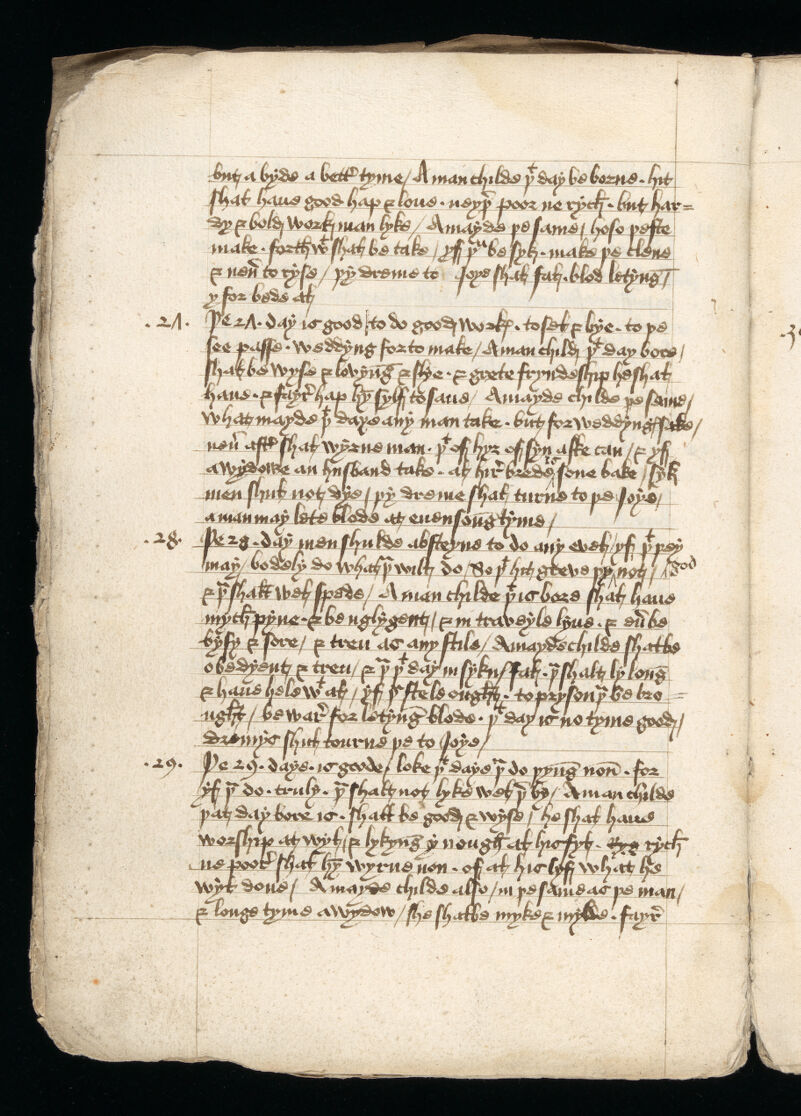 but a byde a bett tyme / A man childe þᵗ day be borne · hit
shal haue good hap & loue · neyþ poor ne rych · but har=
dy & bold work man lyke / A mayde þe same / hoso þefte
make · forth wᵗ shal be take / yff þᵘ be syk · make þe clene
& neũ to ryse / þy dreme to Joye shal fall · blod letyng
y for bede al
·27· Þe 27 · day is good to do good work · to sel & bye · to þe
see passe · weddyng for to make / A man child þᵗ day bore /
shal be wyse & lovyng & slye · & grete fryndeship he shal
haue · & fayr hap hȳ sylf to saue / A mayde childe þe same /
what mayde þᵗ daye any man take · but for weddyng sake /
neũ aft shal wyrne man · þᵗ off hyr of syn aske can / & yff
a wydowe an husband take · al hir bredes sone bake / syk
men shul not dye / þy dreme shal turne to þe Joye /
a man may lete blode at evensong tyme /
·28· Þe 28 · day men shulde absteyne to do any evel / yf þᵗ þey
may / bodely do what þᵘ wilt do / So þᵗ hit greve þy not / god
& þᵘ shalt wel spede / A man childe þᵗ is bore shal haue
mych pyne · & be neglygent / & in traveyle lyue · & eũ be
bysy & sore / & treu as any stile / A mayde childe shal be
obedyent & treu / & þᵘ þᵗ day in sykn / fall · þᵘ shalt ly long
& haue hele wᵗ al / yf þᵘ stele ought · to pryson þᵘ be bro=
ught / be war for letyng blode · þᵗ day is no tyme good /
dremys shul tourne þe to Joye /
·29· Þe 29 · daye · is gode / loke þᵗ daye þᵘ do þyng non · for
yf þᵘ do · truly · þᵘ shalt not lyke wel þᵘ by / A man childe
þat day bore is · shall be good & wyse / he shal haue
worship at wyl / & lykyng ynough al his fyl · rych
ne poor shal hȳ wyrne non · of al his lyff what he
wyl done / A mayde childe also / in þe same as þe man /
& longe tyme a wydow / she shal be myke & mylde · fayr